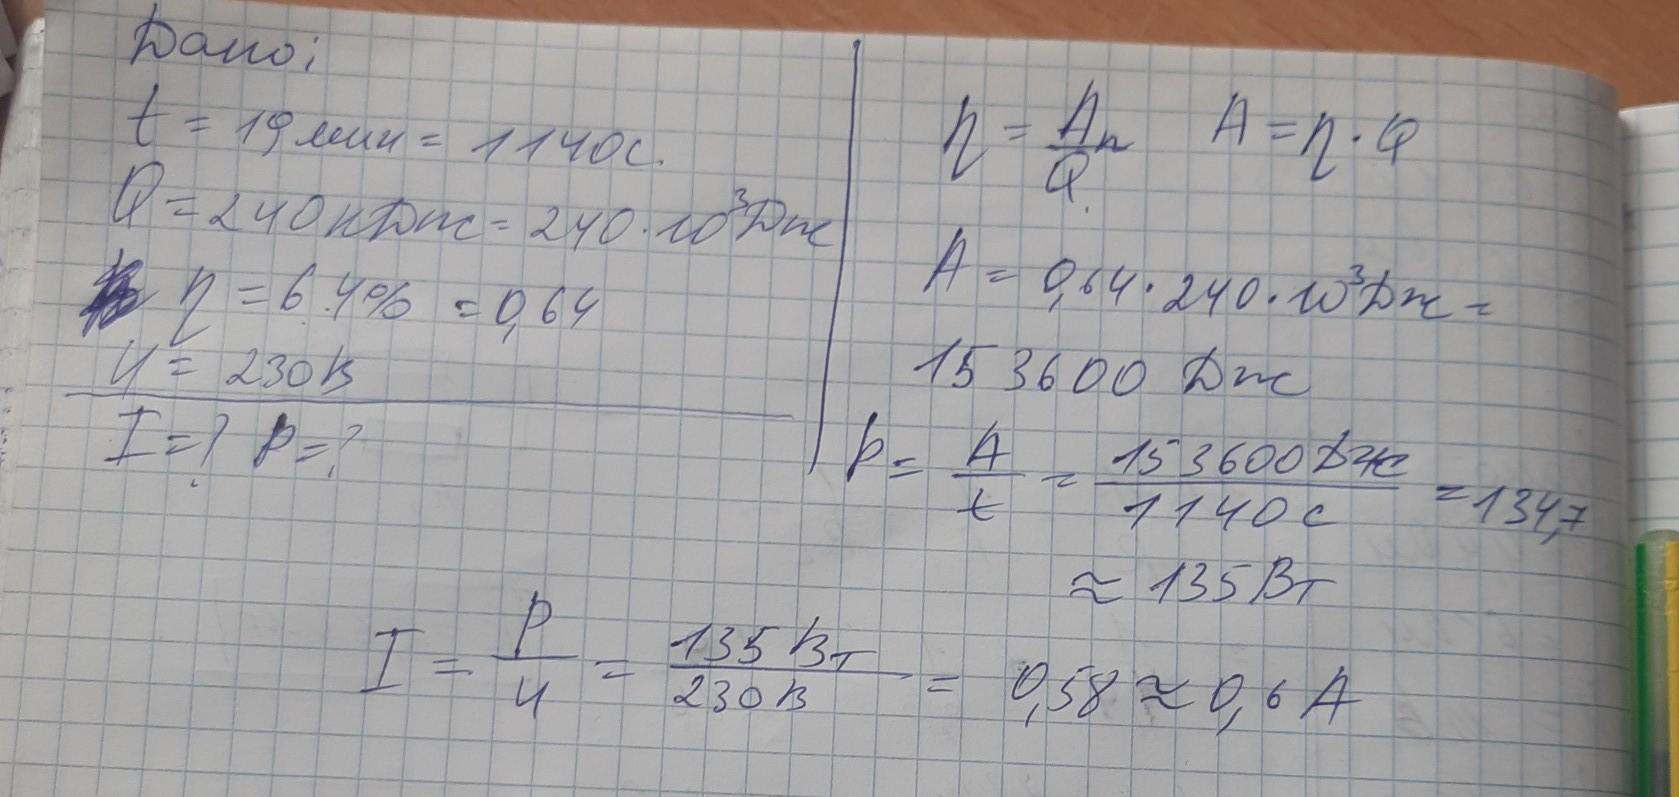 Дано:
t = 19 мин = 1140 с.
Q = 240 кДж = 240 · 10³ Дж
η = 64% = 0,64
U = 230 В
I = ? P = ?
η = Aп/Q A = η · Q
A = 0,64 · 240 · 10³ Дж =
153600 Дж
P = A/t = 153600 Дж/1140 с = 134,7
≈ 135 Вт
I = P/U = 135 Вт/230 В = 0,58 ≈ 0,6 А